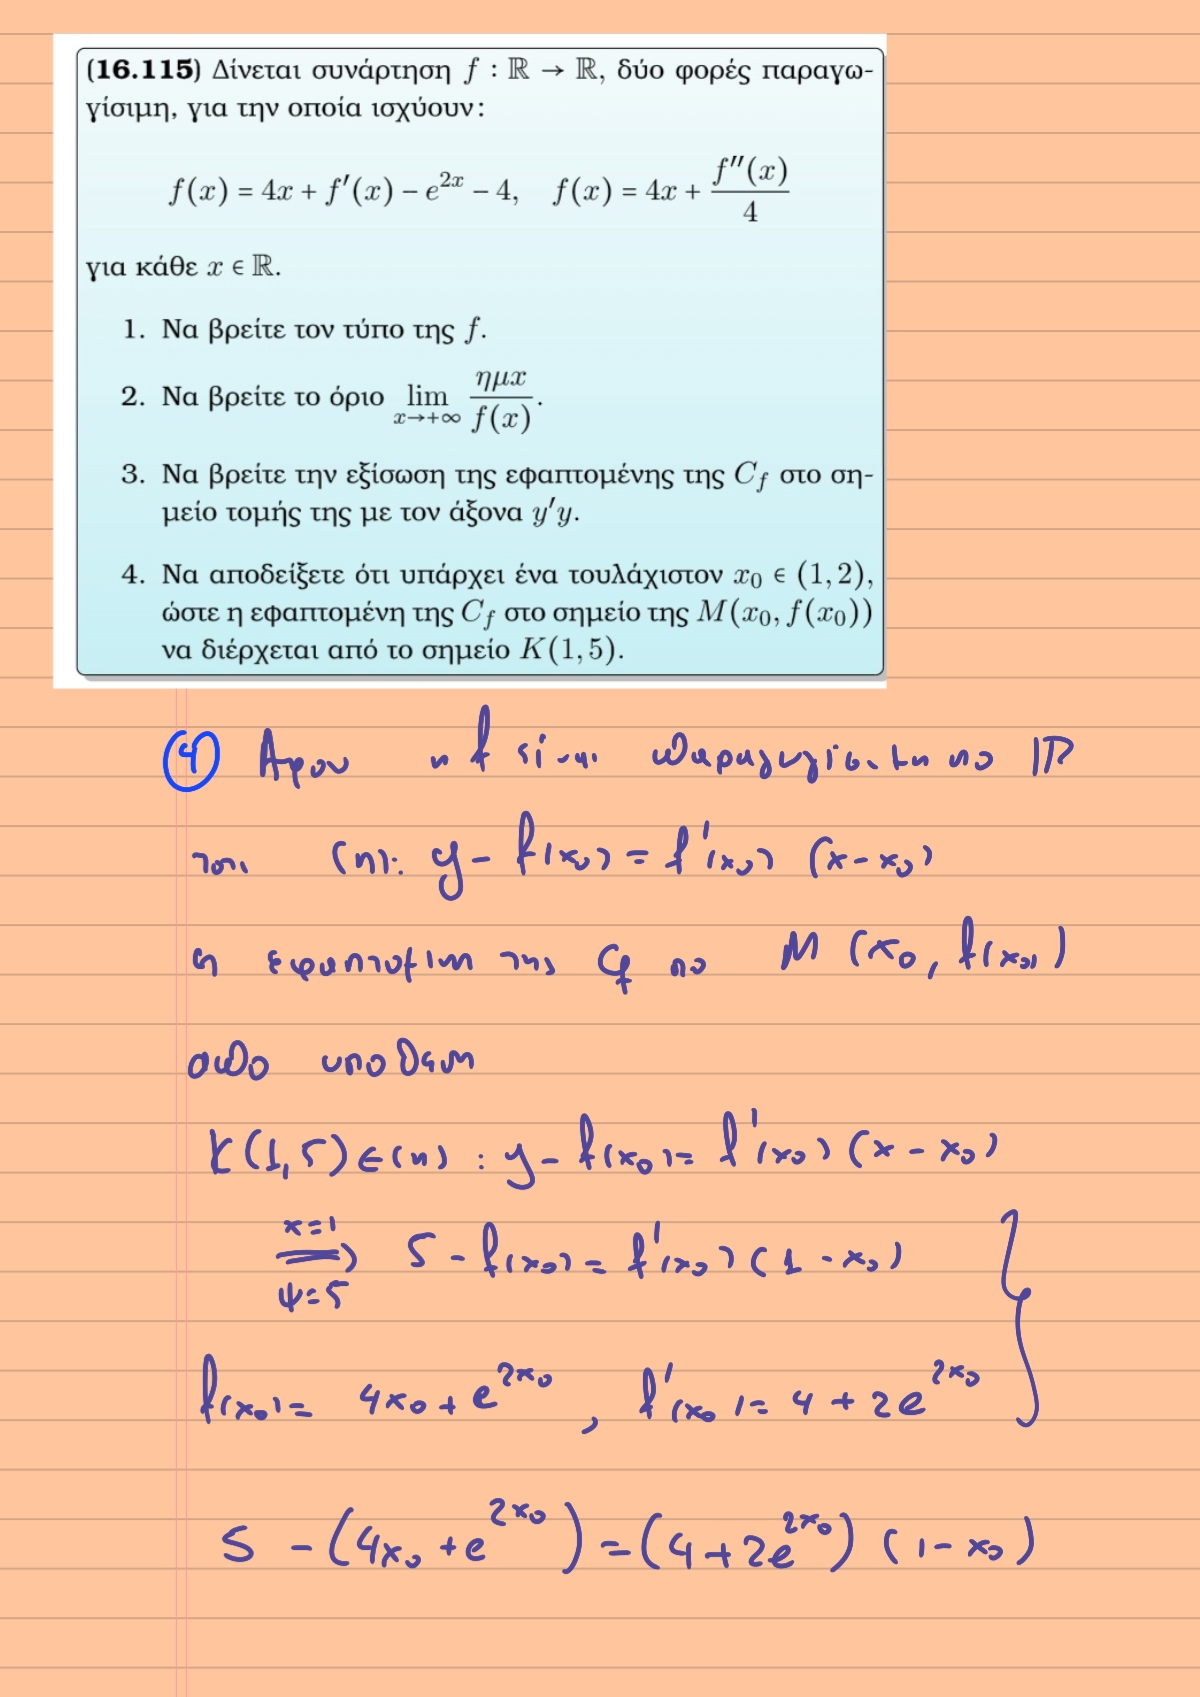 (16.115) Δίνεται συνάρτηση f : ℝ → ℝ, δύο φορές παραγω-
γίσιμη, για την οποία ισχύουν:
f(x) = 4x + f′(x) − e^{2x} − 4,   f(x) = 4x + f″(x)/4
για κάθε x ∈ ℝ.
1. Να βρείτε τον τύπο της f.
2. Να βρείτε το όριο lim_{x→+∞} ημx/f(x).
3. Να βρείτε την εξίσωση της εφαπτομένης της C_f στο ση-
μείο τομής της με τον άξονα y′y.
4. Να αποδείξετε ότι υπάρχει ένα τουλάχιστον x₀ ∈ (1, 2),
ώστε η εφαπτομένη της C_f στο σημείο της M(x₀, f(x₀))
να διέρχεται από το σημείο K(1, 5).
④ Αφου η f είναι παραγωγίσιμη στο ℝ
τοτε (η): y − f(x₀) = f′(x₀) (x − x₀)
η εφαπτομένη της C_f στο M (x₀, f(x₀))
από υποθεση
K(1,5) ∈ (η) : y − f(x₀) = f′(x₀) (x − x₀)
x=1 ⇒ ψ=5 5 − f(x₀) = f′(x₀) (1 − x₀)
f(x₀) = 4x₀ + e^{2x₀} , f′(x₀) = 4 + 2e^{2x₀}
5 − (4x₀ + e^{2x₀}) = (4 + 2e^{2x₀}) (1 − x₀)